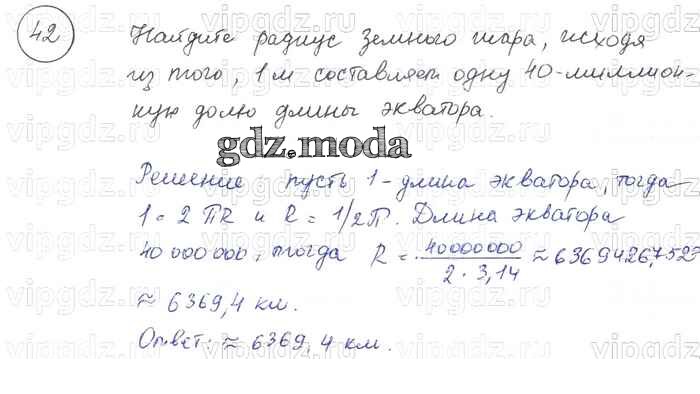 42
Найдите радиус земного шара, исходя
из того, 1 м составляет одну 40-миллион-
ную долю длины экватора.
gdz.moda
Решение пусть 1 - длина экватора, тогда
1 = 2 πR и R = 1/2π. Длина экватора
40 000 000, тогда R = 40000000 / 2 · 3,14 ≈ 6369426,7523
≈ 6369,4 км.
Ответ: ≈ 6369,4 км.